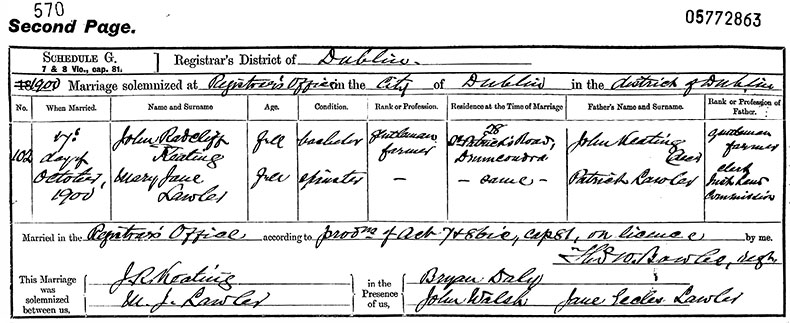 570
Second Page.
05772863
SCHEDULE G.
7 & 8 Vic., cap. 81.
Registrar's District of Dublin.
18 1900 Marriage solemnized at Registrar's Office in the City of Dublin in the district of Dublin
No. When Married. Name and Surname Age. Condition. Rank or Profession. Residence at the Time of Marriage Father's Name and Surname. Rank or Profession of Father.
102
day of
October,
1900
John Radcliff
Keating
full
bachelor
gentleman
farmer
28
St Patrick's Road,
Drumcondra
John Keating
gentleman
farmer
Mary Jane
Lawler
full
spinster
—
— same —
Patrick Lawler
clerk
Irish Land
Commission
Married in the Registrar's Office according to prov.ns of Act 7 & 8 Vic, cap 81, on licence by me.
Thos W. Bowles, regr.
This Marriage
was
solemnized
between us,
J. R. Keating
M. J. Lawler
in the
Presence of
us,
Bryan Daly
John Walsh Jane Eccles Lawler